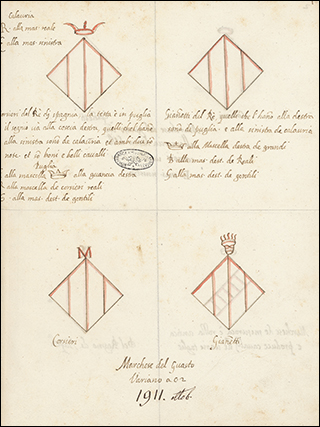 Calauria
R. alla mas. reale
C alla mas sinistra
Corsieri del Rè di spagna la testa è in puglia
il segno uia alla coscia destra, quelli che l'hano
alla sinistra sono de calauria, et ambi dua
Puglia
alla mascella alla guancia destra
R alla mascella de corsieri reali
G alla mas. dest. de gentili
Gianetti del Rè, quelli che l'hano alla destra
sono de puglia, e alla sinistra de calauria
alla Mascella destra de grandi
R alla mas dest. de Reali
G alla mas. dest. de gentili
M
Corsieri
Gianetti
Marchese del Guasto
Variano a c 2
1911.